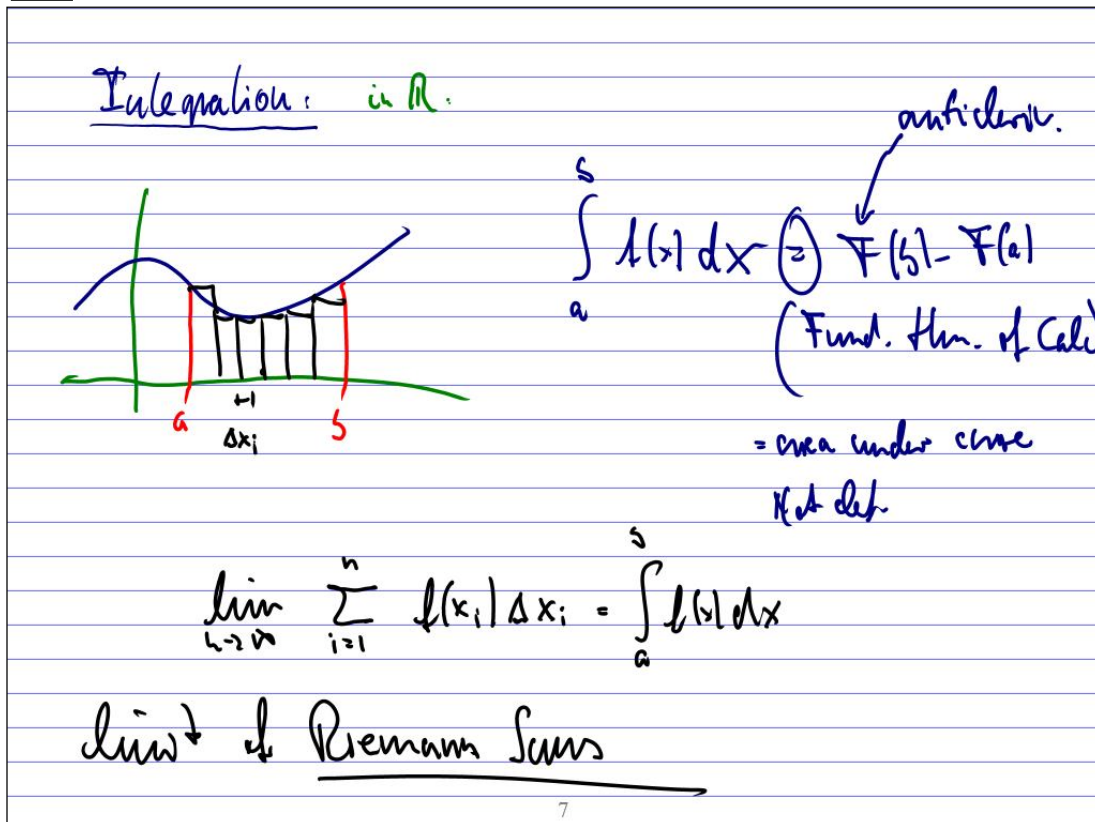 Integration: in ℝ.
antideriv.
∫_a^b f(x) dx = F(b) - F(a)
(Fund. thm. of Calc)
a b
Δx_i
= area under curve
Not def
lim_{n→∞} ∑_{i=1}^n f(x_i) Δx_i = ∫_a^b f(x) dx
limit of Riemann Sums
7